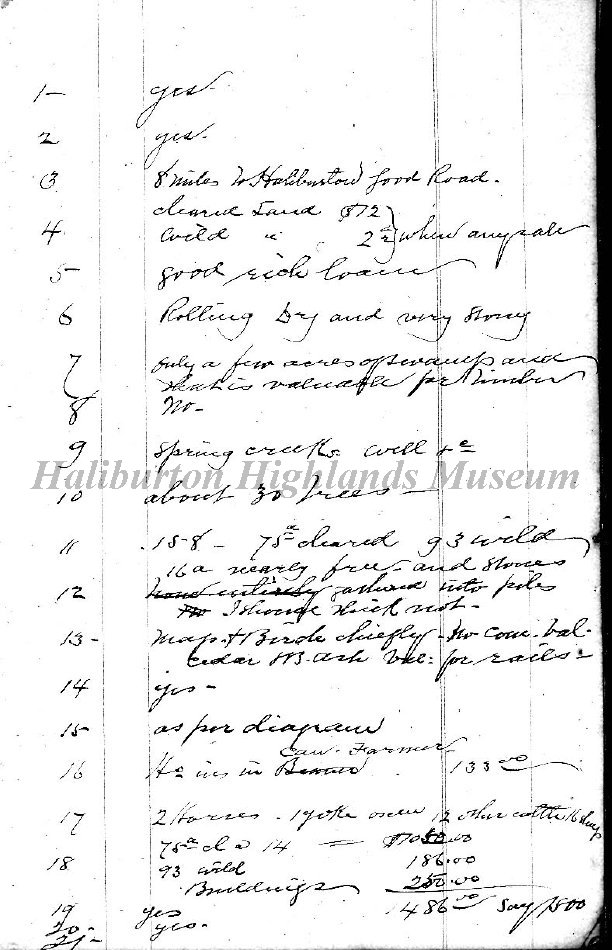 1- yes-
2 yes.
3 8 miles to Haliburton good Road.
cleared Land $12
4 wild " " 2 when any sale
5 good rich loam
6 Rolling Dry and very stony
7 only a few acres of swamp and
that is valuable for timber
8 No-
9 spring creek well
Haliburton Highlands Museum
10 about 30 trees
11 158 - 75a cleared 93 wild
16 a nearly free and stones
12 into piles
not-
13- Map & Birch chiefly. No com. val.
cedar & B. Ash Val. for rails-
14 yes-
15 as per diagram
Can. Farmer
16 ins in 133 00
17 2 Horses. 1 yoke oxen 12 other cattle 16 sheep
75a cl a 14 = $1050.00
18 93 wild 186.00
Buildings 250.00
19 yes 1486 00 say 1500
20- yes-
21-